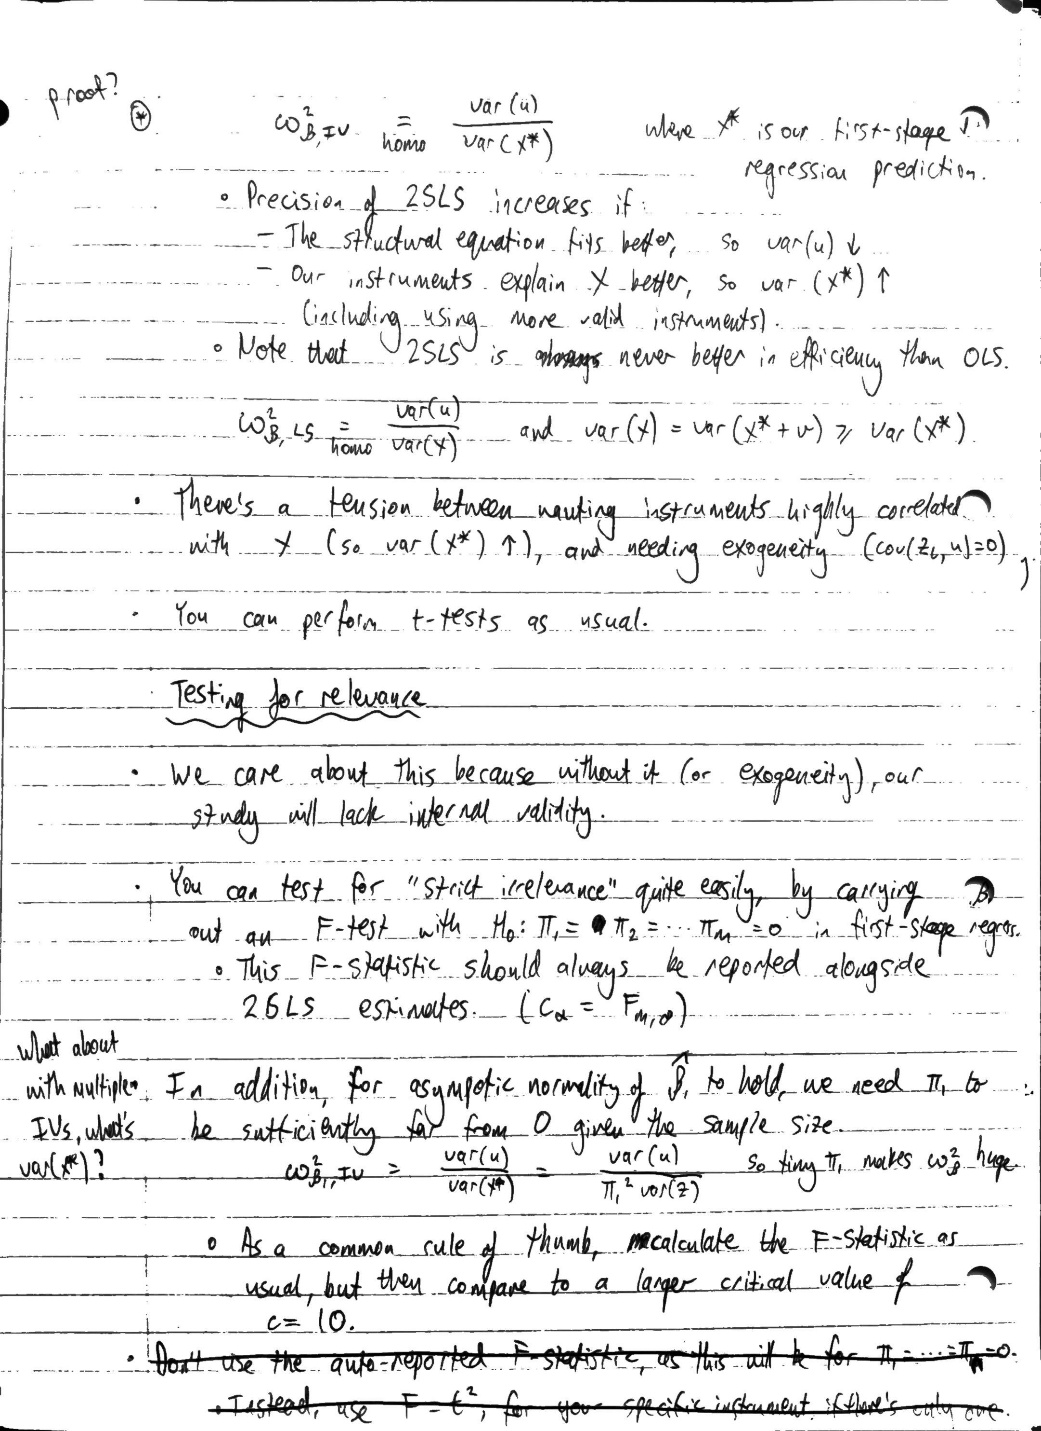 proof?
⊛ ω²β,IV =homo var(u)/var(X*) where X* is our first-stage
regression prediction.
◦ Precision of 2SLS increases if:
– The structural equation fits better, so var(u) ↓
– Our instruments explain X better, so var(X*) ↑
(including using more valid instruments).
◦ Note that 2SLS is never better in efficiency than OLS.
ω²β,LS =homo var(u)/var(X) and var(X) = var(X* + v) ⩾ var(X*)
· There's a tension between wanting instruments highly correlated
with X (so var(X*) ↑), and needing exogeneity (cov(Zi, u)=0)
· You can perform t-tests as usual.
Testing for relevance
· We care about this because without it (or exogeneity), our
study will lack internal validity.
· You can test for "strict irrelevance" quite easily, by carrying
out an F-test with H₀: π₁ = π₂ = ... πm = 0 in first-stage regrs.
◦ This F-statistic should always be reported alongside
2SLS estimates. (Cα = Fm,∞)
What about
with multiple
IVs, what's
var(X*)?
· In addition, for asympotic normality of β̂₁ to hold, we need π₁ to
be sufficiently far from 0 given the sample size.
ω²β₁,IV = var(u)/var(X*) = var(u)/π₁² var(Z) so tiny π₁ makes ω²β huge.
◦ As a common rule of thumb, calculate the F-statistic as
usual, but then compare to a larger critical value of
c = 10.
· Don't use the auto-reported F-statistic, as this will be for π₁ = ... = πn = 0.
· Instead, use F = t², for your specific instrument if there's only one.